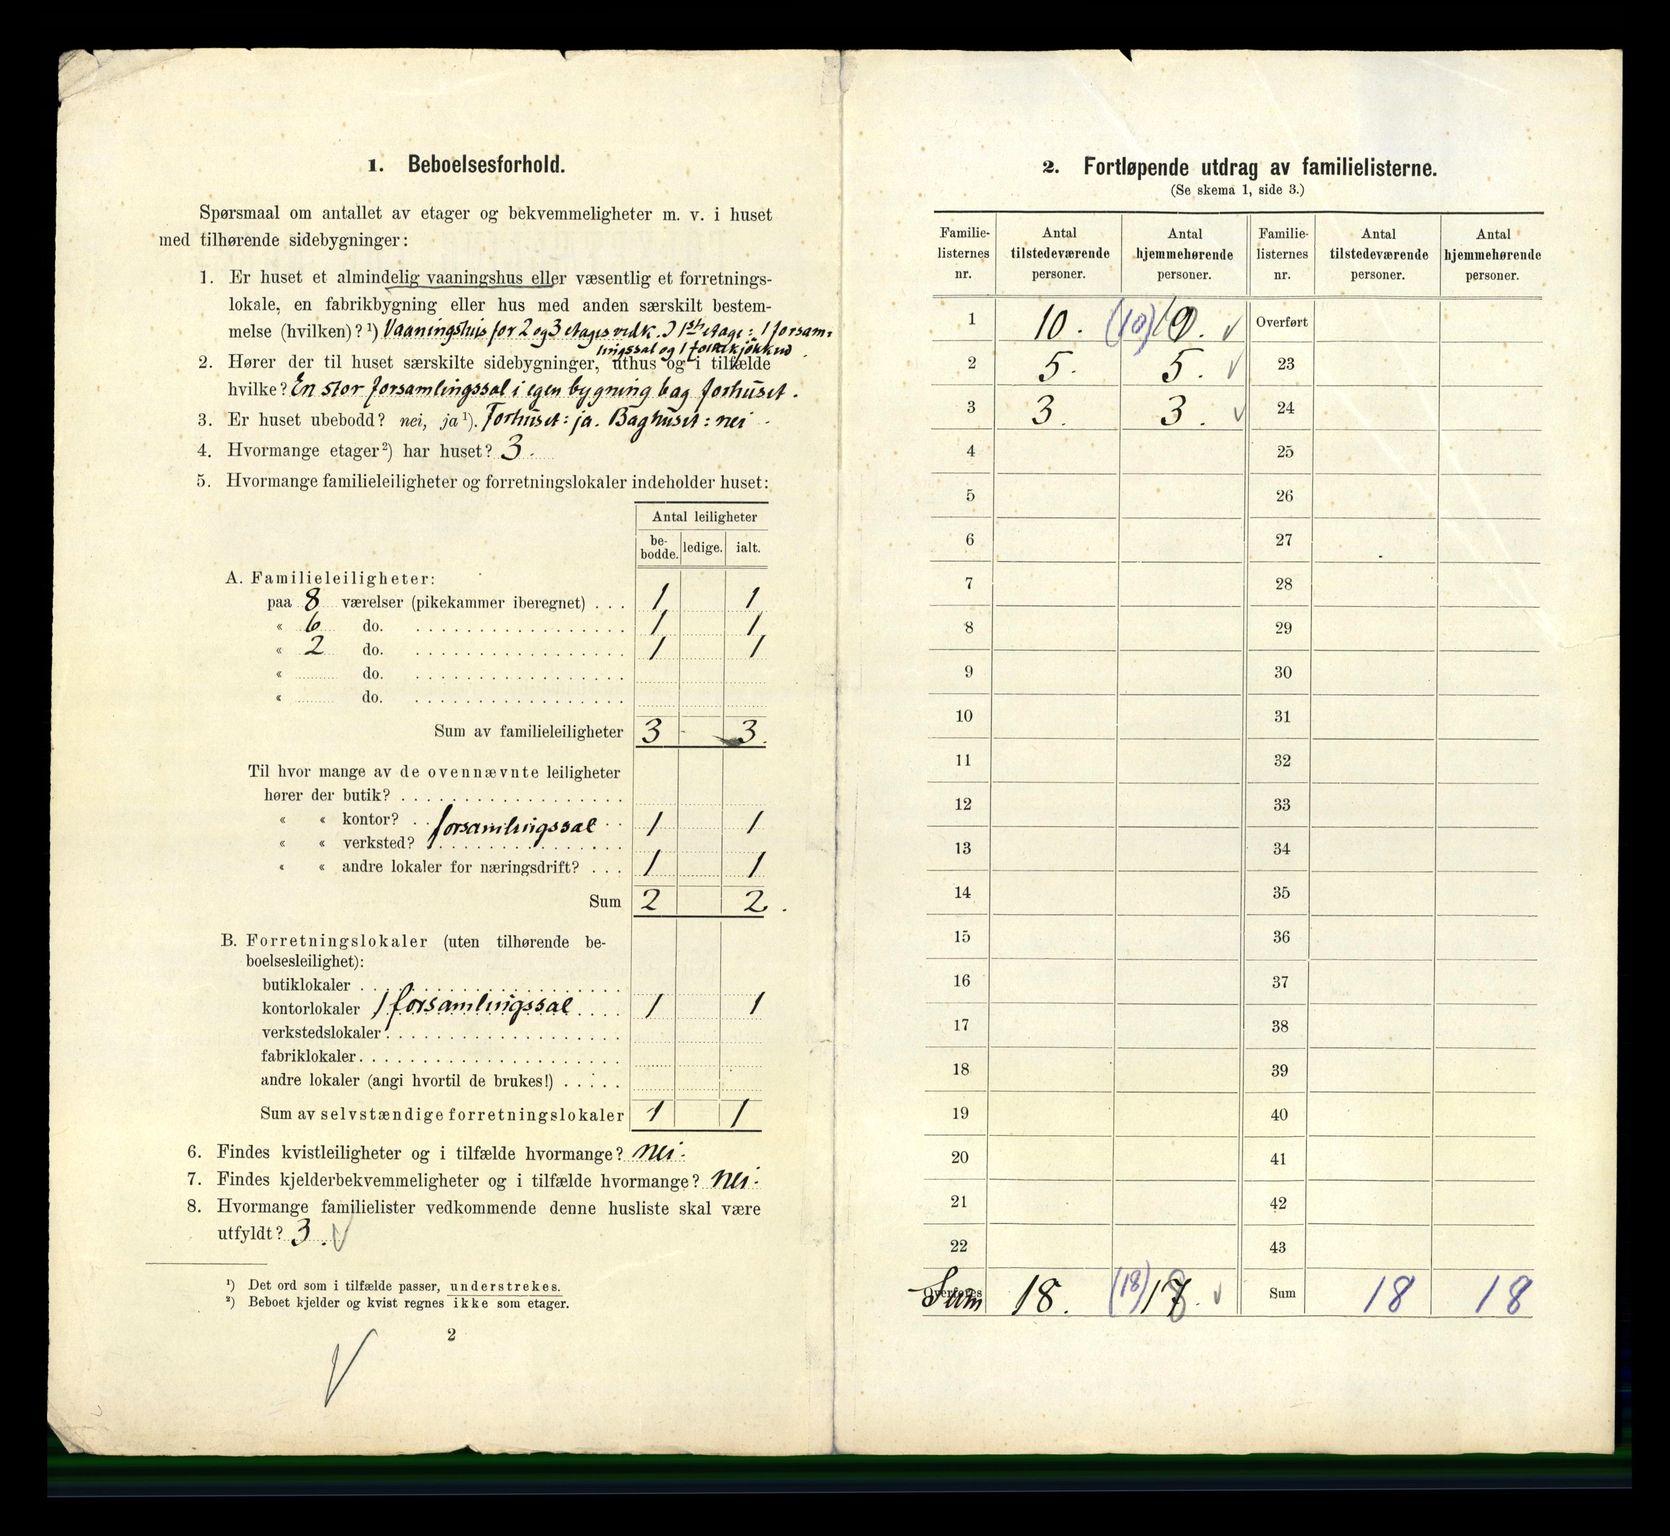 1. Beboelsesforhold.
Spørsmaal om antallet av etager og bekvemmeligheter m. v. i huset
med tilhørende sidebygninger:
1. Er huset et almindelig vaaningshus eller væsentlig et forretnings-
lokale, en fabrikbygning eller hus med anden særskilt bestem-
melse (hvilken)?¹) Vaaningshus for 2 og 3 etages vedk. I 1ste etage: 1 forsam-
lingssal og 1 folkekjøkken.
2. Hører der til huset særskilte sidebygninger, uthus og i tilfælde
hvilke? En stor forsamlingssal i egen bygning bag forhuset.
3. Er huset ubebodd? nei, ja¹). Forhuset: ja. Baghuset: nei
4. Hvormange etager²) har huset? 3.
5. Hvormange familieleiligheter og forretningslokaler indeholder huset:
Antal leiligheter
be-
bodde. ledige. ialt.
A. Familieleiligheter:
paa 8 værelser (pikekammer iberegnet) . . . 1 1
« 6 do. 1 1
« 2 do. 1 1
« do.
« do.
Sum av familieleiligheter 3 - 3.
Til hvor mange av de ovennævnte leiligheter
hører der butik?
« « kontor? forsamlingssal 1 1
« « verksted?
« « andre lokaler for næringsdrift? . . . 1 1
Sum 2 2.
B. Forretningslokaler (uten tilhørende be-
boelsesleilighet):
butiklokaler
kontorlokaler 1 forsamlingssal 1 1
verkstedslokaler
fabriklokaler
andre lokaler (angi hvortil de brukes!)
Sum av selvstændige forretningslokaler 1 1
6. Findes kvistleiligheter og i tilfælde hvormange? nei.
7. Findes kjelderbekvemmeligheter og i tilfælde hvormange? nei.
8. Hvormange familielister vedkommende denne husliste skal være
utfyldt? 3.
¹) Det ord som i tilfælde passer, understrekes.
²) Beboet kjelder og kvist regnes ikke som etager.
2
2. Fortløpende utdrag av familielisterne.
(Se skema 1, side 3.)
Familie-
listernes
nr. Antal
tilstedeværende
personer. Antal
hjemmehørende
personer. Familie-
listernes
nr. Antal
tilstedeværende
personer. Antal
hjemmehørende
personer.
1 10. (10) Overført
2 5. 5. 23
3 3. 3. 24
4 25
5 26
6 27
7 28
8 29
9 30
10 31
11 32
12 33
13 34
14 35
15 36
16 37
17 38
18 39
19 40
20 41
21 42
22 43
Overføres Sum 18. (18) 17. Sum 18 18